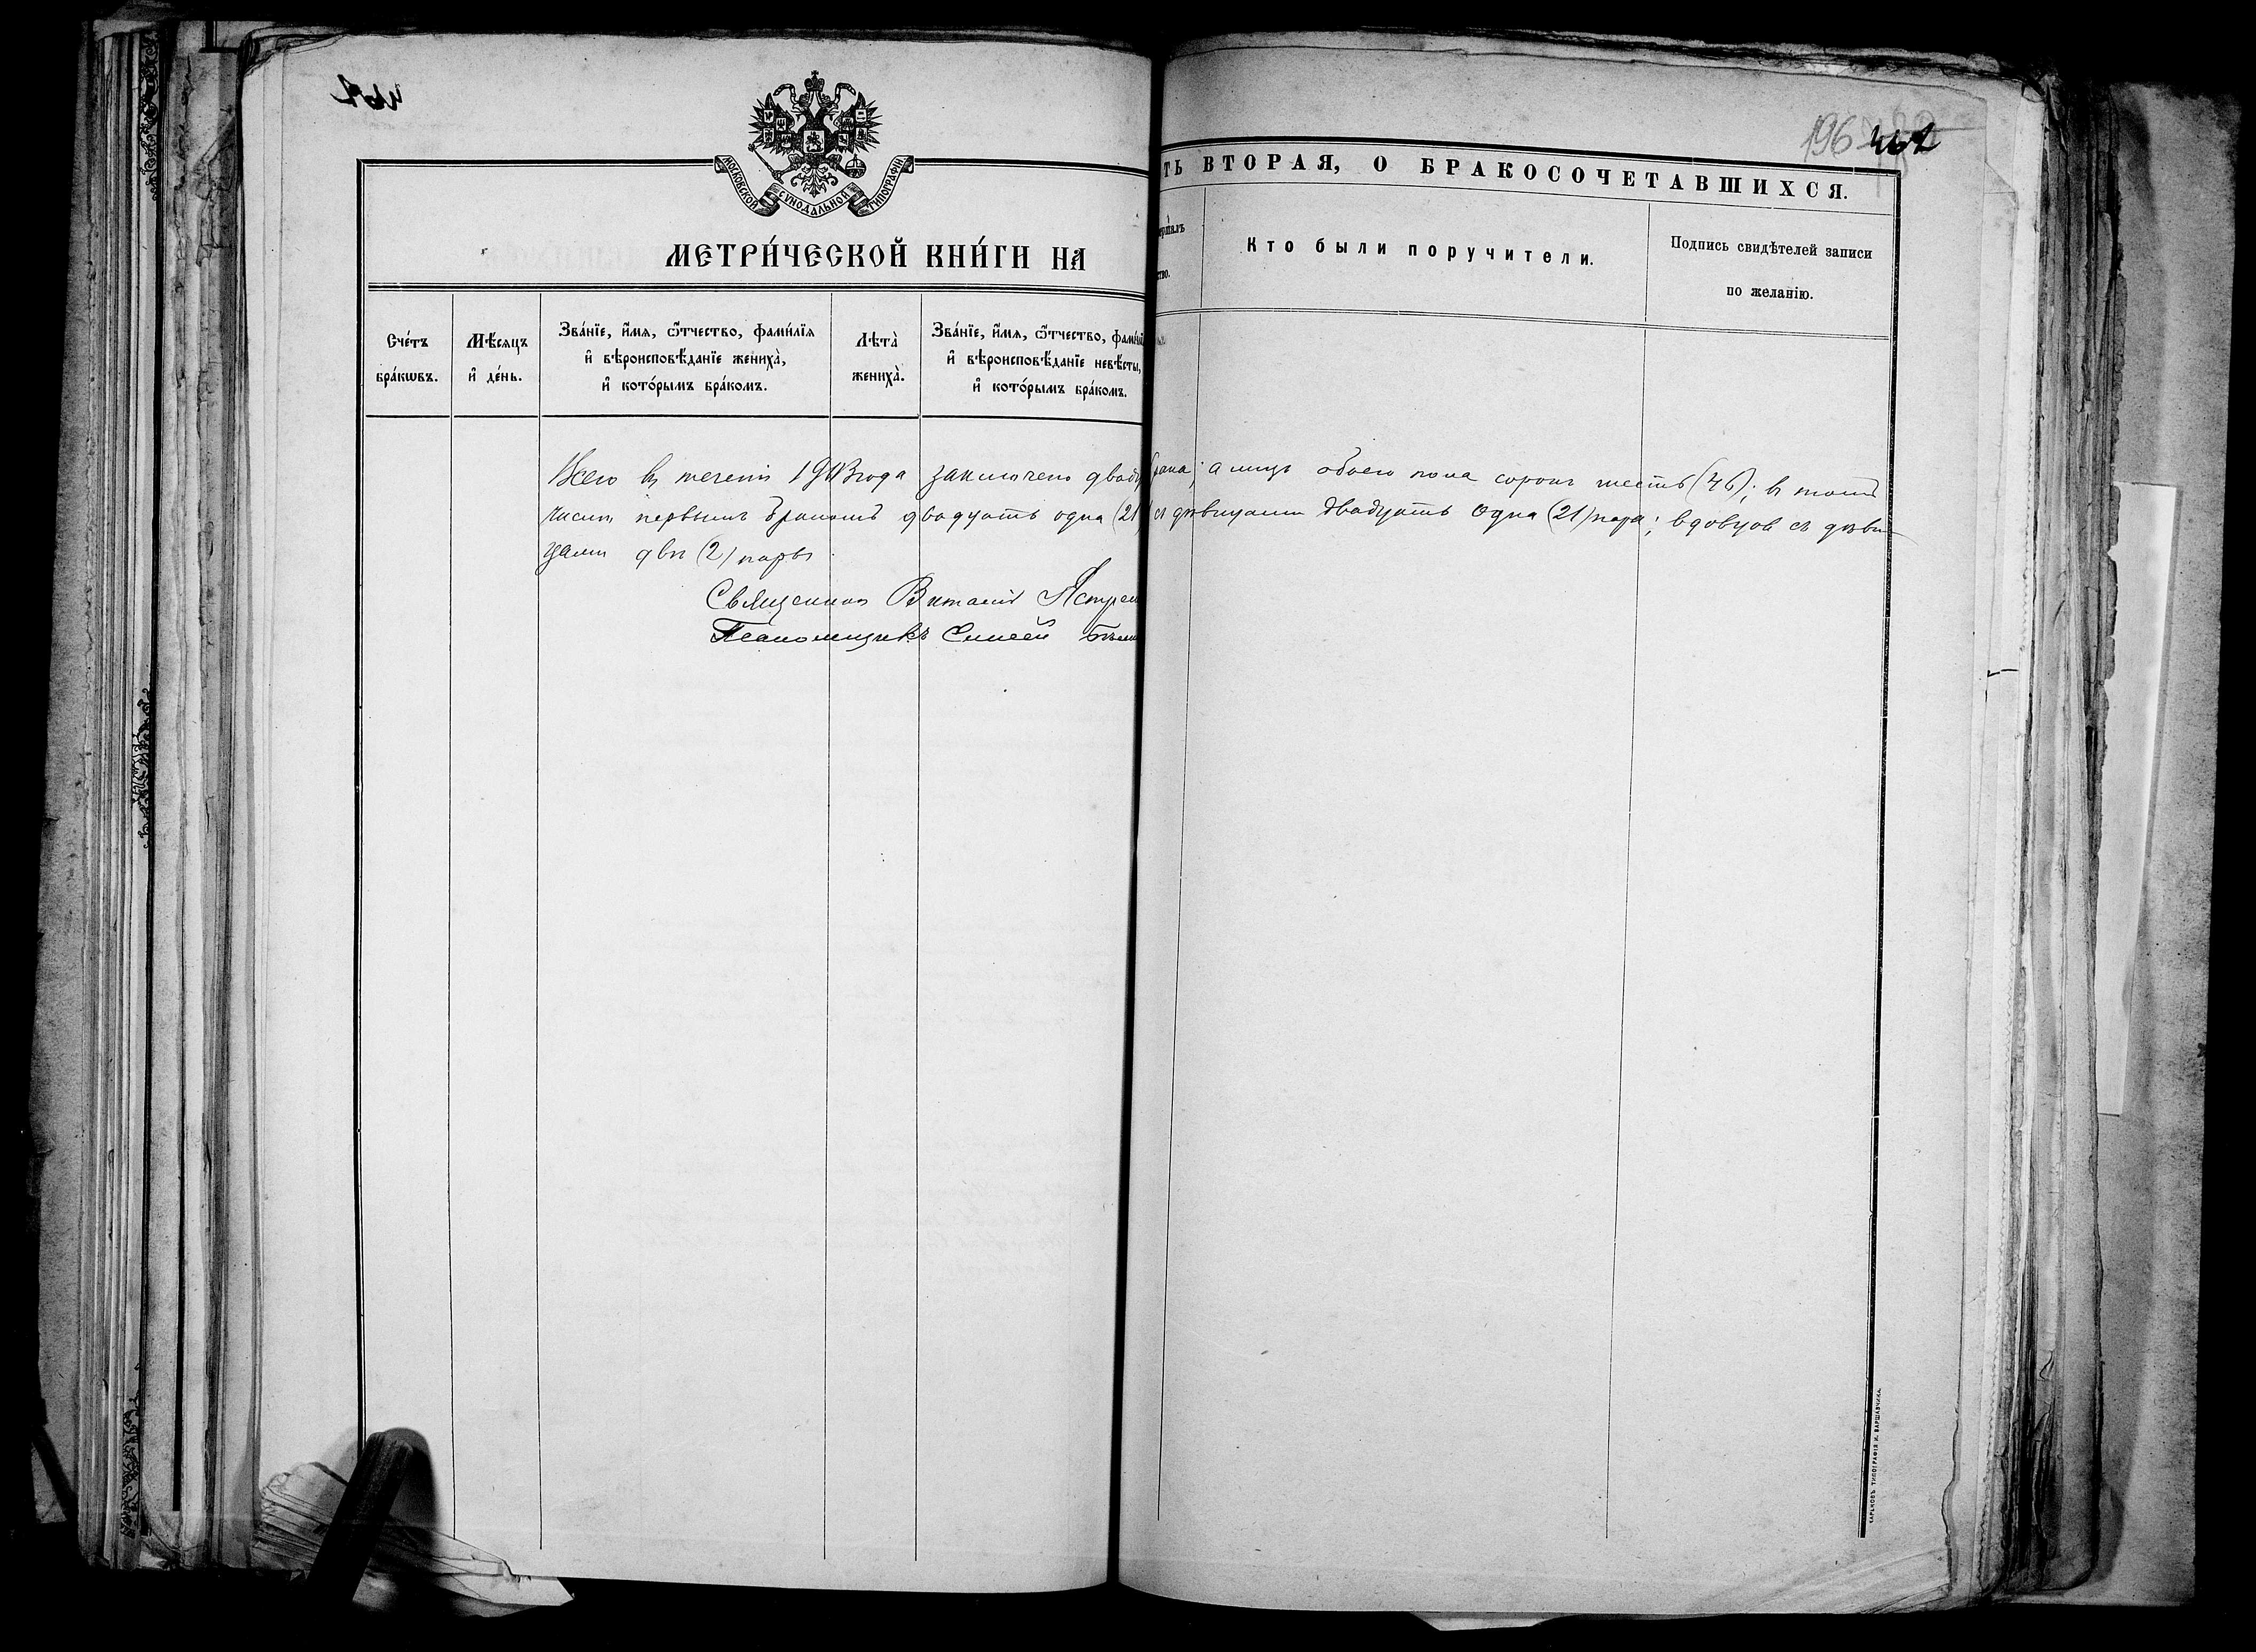 196 462
МОСКОВСКОЙ СѴНОДАЛЬНОЙ ТИПОГРАФІИ
МЕТРИ́ЧЕСКОЙ КНИ́ГИ НА
ТЬ ВТОРАЯ, О БРАКОСОЧЕТАВШИХСЯ.
Сче́тъ бра́кѡвъ.
Мѣ́сяцъ и҆ де́нь.
Зва́нїе, и҆́мѧ, ѻ҆́тчество, фами́лїѧ
и҆ вѣроисповѣ́данїе жениха̀,
и҆ кото́рымъ бра́комъ.
Лѣта̀ жениха̀.
Зва́нїе, и҆́мѧ, ѻ҆́тчество, фами́лї
и҆ вѣроисповѣ́данїе невѣ́сты,
и҆ кото́рымъ бра́комъ.
Кто были поручители.
Подпись свидѣтелей записи
по желанію.
Всего въ теченіи 1913 года заключено двадц брака; а лицъ обоего пола сорокъ шесть (46); въ томъ
числѣ первымъ бракомъ двадцать одна (21) съ дѣвицами двадцать одна (21) пара; вдовцов съ дѣви-
цами двѣ (2) пары
Священник Виталій Ястрем
Псаломщикъ
ХАРЬКОВЪ ТИПОГРАФІЯ И. ВАРШАВЧИКА.